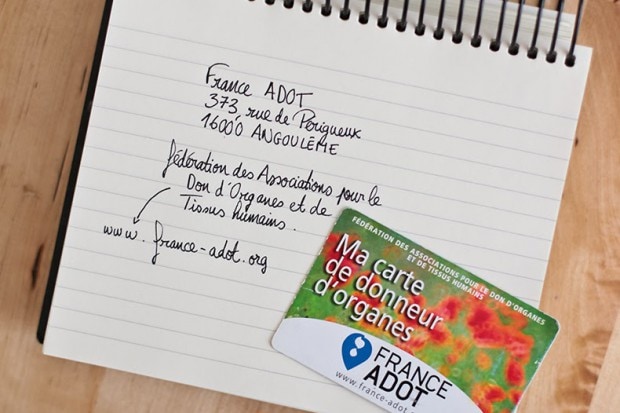 France ADOT
373, rue de Périgueux
16000 ANGOULÊME
Fédération des Associations pour le
Don d'Organes et de
Tissus humains.
www.france-adot.org
FÉDÉRATION DES ASSOCIATIONS POUR LE DON D'ORGANES
ET DE TISSUS HUMAINS
Ma carte
de donneur
d'organes
FRANCE
ADOT
www.france-adot.